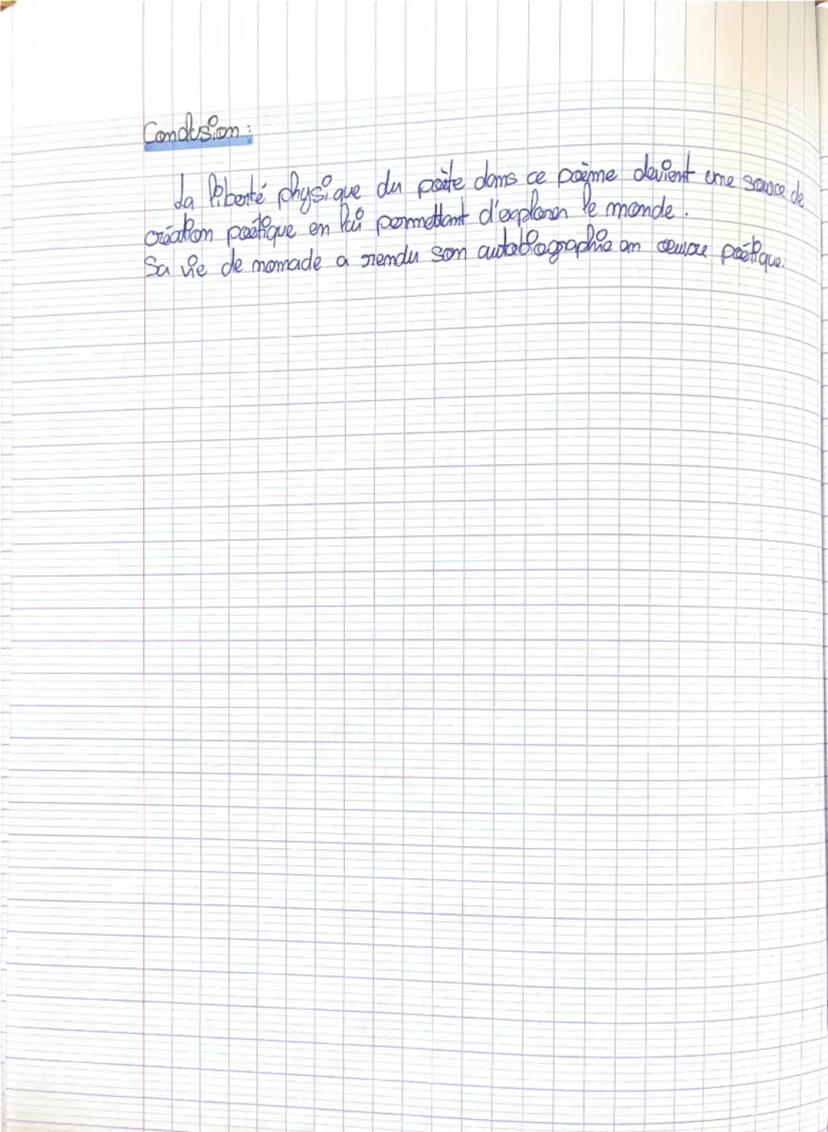 Conclusion :
La liberté physique du poète dans ce poème devient une source de
création poétique en lui permettant d'explorer le monde.
Sa vie de nomade a rendu son autobiographie en oeuvre poétique.